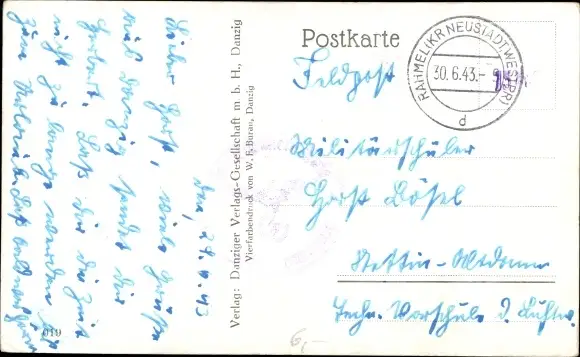 Postkarte
RAHMEL (KR NEUSTADT WESTPR)
30.6.43.-
d
Feldpost
Militärschüler
Horst Bösel
Stettin-Altdamm
Techn. Vorschule d. Luftw.
Verlag: Danziger Verlags-Gesellschaft m. b. H., Danzig
Vierfarbendruck von W. F. Burau, Danzig
den, 29.6.43
Lieber Horst, viele Grüße
aus Danzig sendet dir
Herbert. Laß dir die Zeit
nicht zu lange werden
019
6,-